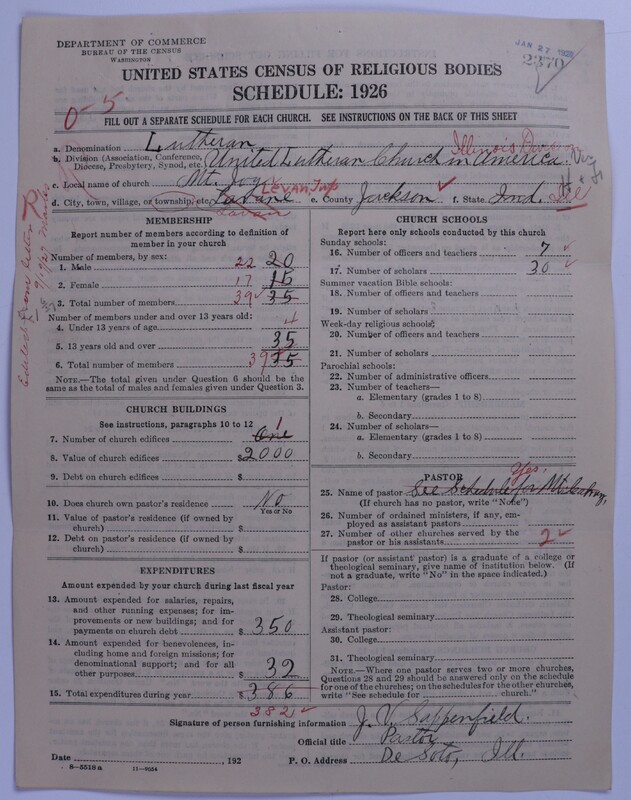 DEPARTMENT OF COMMERCE
BUREAU OF THE CENSUS
WASHINGTON
JAN 27
2370
UNITED STATES CENSUS OF RELIGIOUS BODIES
SCHEDULE: 1926
0-5
FILL OUT A SEPARATE SCHEDULE FOR EACH CHURCH. SEE INSTRUCTIONS ON THE BACK OF THIS SHEET
a. Denomination Lutheran
b. Division (Association, Conference, Diocese, Presbytery, Synod, etc.) United Lutheran Church in America.
Illinois
c. Local name of church Mt. Joy
LEVAN Twp
d. City, town, village, or township, etc. Lavane e. County Jackson f. State Ind. Ill
Lavan
MEMBERSHIP
Report number of members according to definition of member in your church
Number of members, by sex:
1. Male 22 20
2. Female 17 15
3. Total number of members 39 35
Number of members under and over 13 years old:
4. Under 13 years of age
5. 13 years old and over 35
6. Total number of members 39 35
NOTE.—The total given under Question 6 should be the same as the total of males and females given under Question 3.
CHURCH BUILDINGS
See instructions, paragraphs 10 to 12
7. Number of church edifices One 1
8. Value of church edifices $2000
9. Debt on church edifices $
10. Does church own pastor's residence No
Yes or No
11. Value of pastor's residence (if owned by church) $
12. Debt on pastor's residence (if owned by church) $
EXPENDITURES
Amount expended by your church during last fiscal year
13. Amount expended for salaries, repairs, and other running expenses; for improvements or new buildings; and for payments on church debt $350
14. Amount expended for benevolences, including home and foreign missions; for denominational support; and for all other purposes $32
15. Total expenditures during year $386
382
CHURCH SCHOOLS
Report here only schools conducted by this church
Sunday schools:
16. Number of officers and teachers 7
17. Number of scholars 30
Summer vacation Bible schools:
18. Number of officers and teachers
19. Number of scholars
Week-day religious schools:
20. Number of officers and teachers
21. Number of scholars
Parochial schools:
22. Number of administrative officers
23. Number of teachers—
a. Elementary (grades 1 to 8)
b. Secondary
24. Number of scholars—
a. Elementary (grades 1 to 8)
b. Secondary
PASTOR
Yes,
25. Name of pastor See Schedule for Mt.
(If church has no pastor, write "None")
26. Number of ordained ministers, if any, employed as assistant pastors
27. Number of other churches served by the pastor or his assistants 2
If pastor (or assistant pastor) is a graduate of a college or theological seminary, give name of institution below. (If not a graduate, write "No" in the space indicated.)
Pastor:
28. College
29. Theological seminary
Assistant pastor:
30. College
31. Theological seminary
NOTE.—Where one pastor serves two or more churches, Questions 28 and 29 should be answered only on the schedule for one of the churches; on the schedules for the other churches, write "See schedule for church."
Signature of person furnishing information J. V. Sappenfield.
Official title Pastor
Date , 192 P. O. Address De Soto, Ill.
8—5518a 11—9054